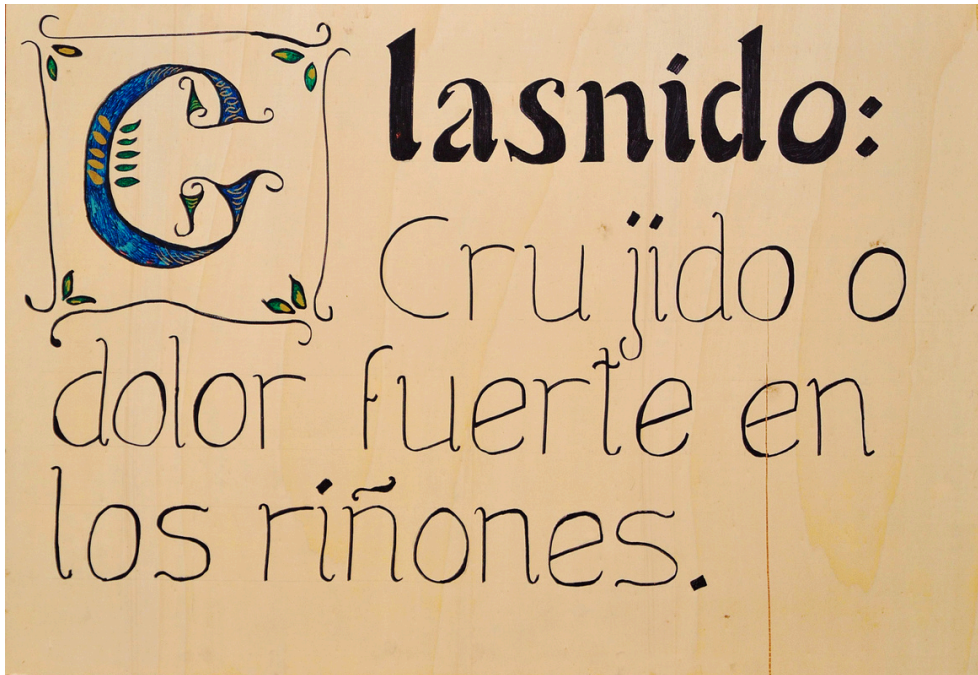 Clasnido:
Crujido o
dolor fuerte en
los riñones.